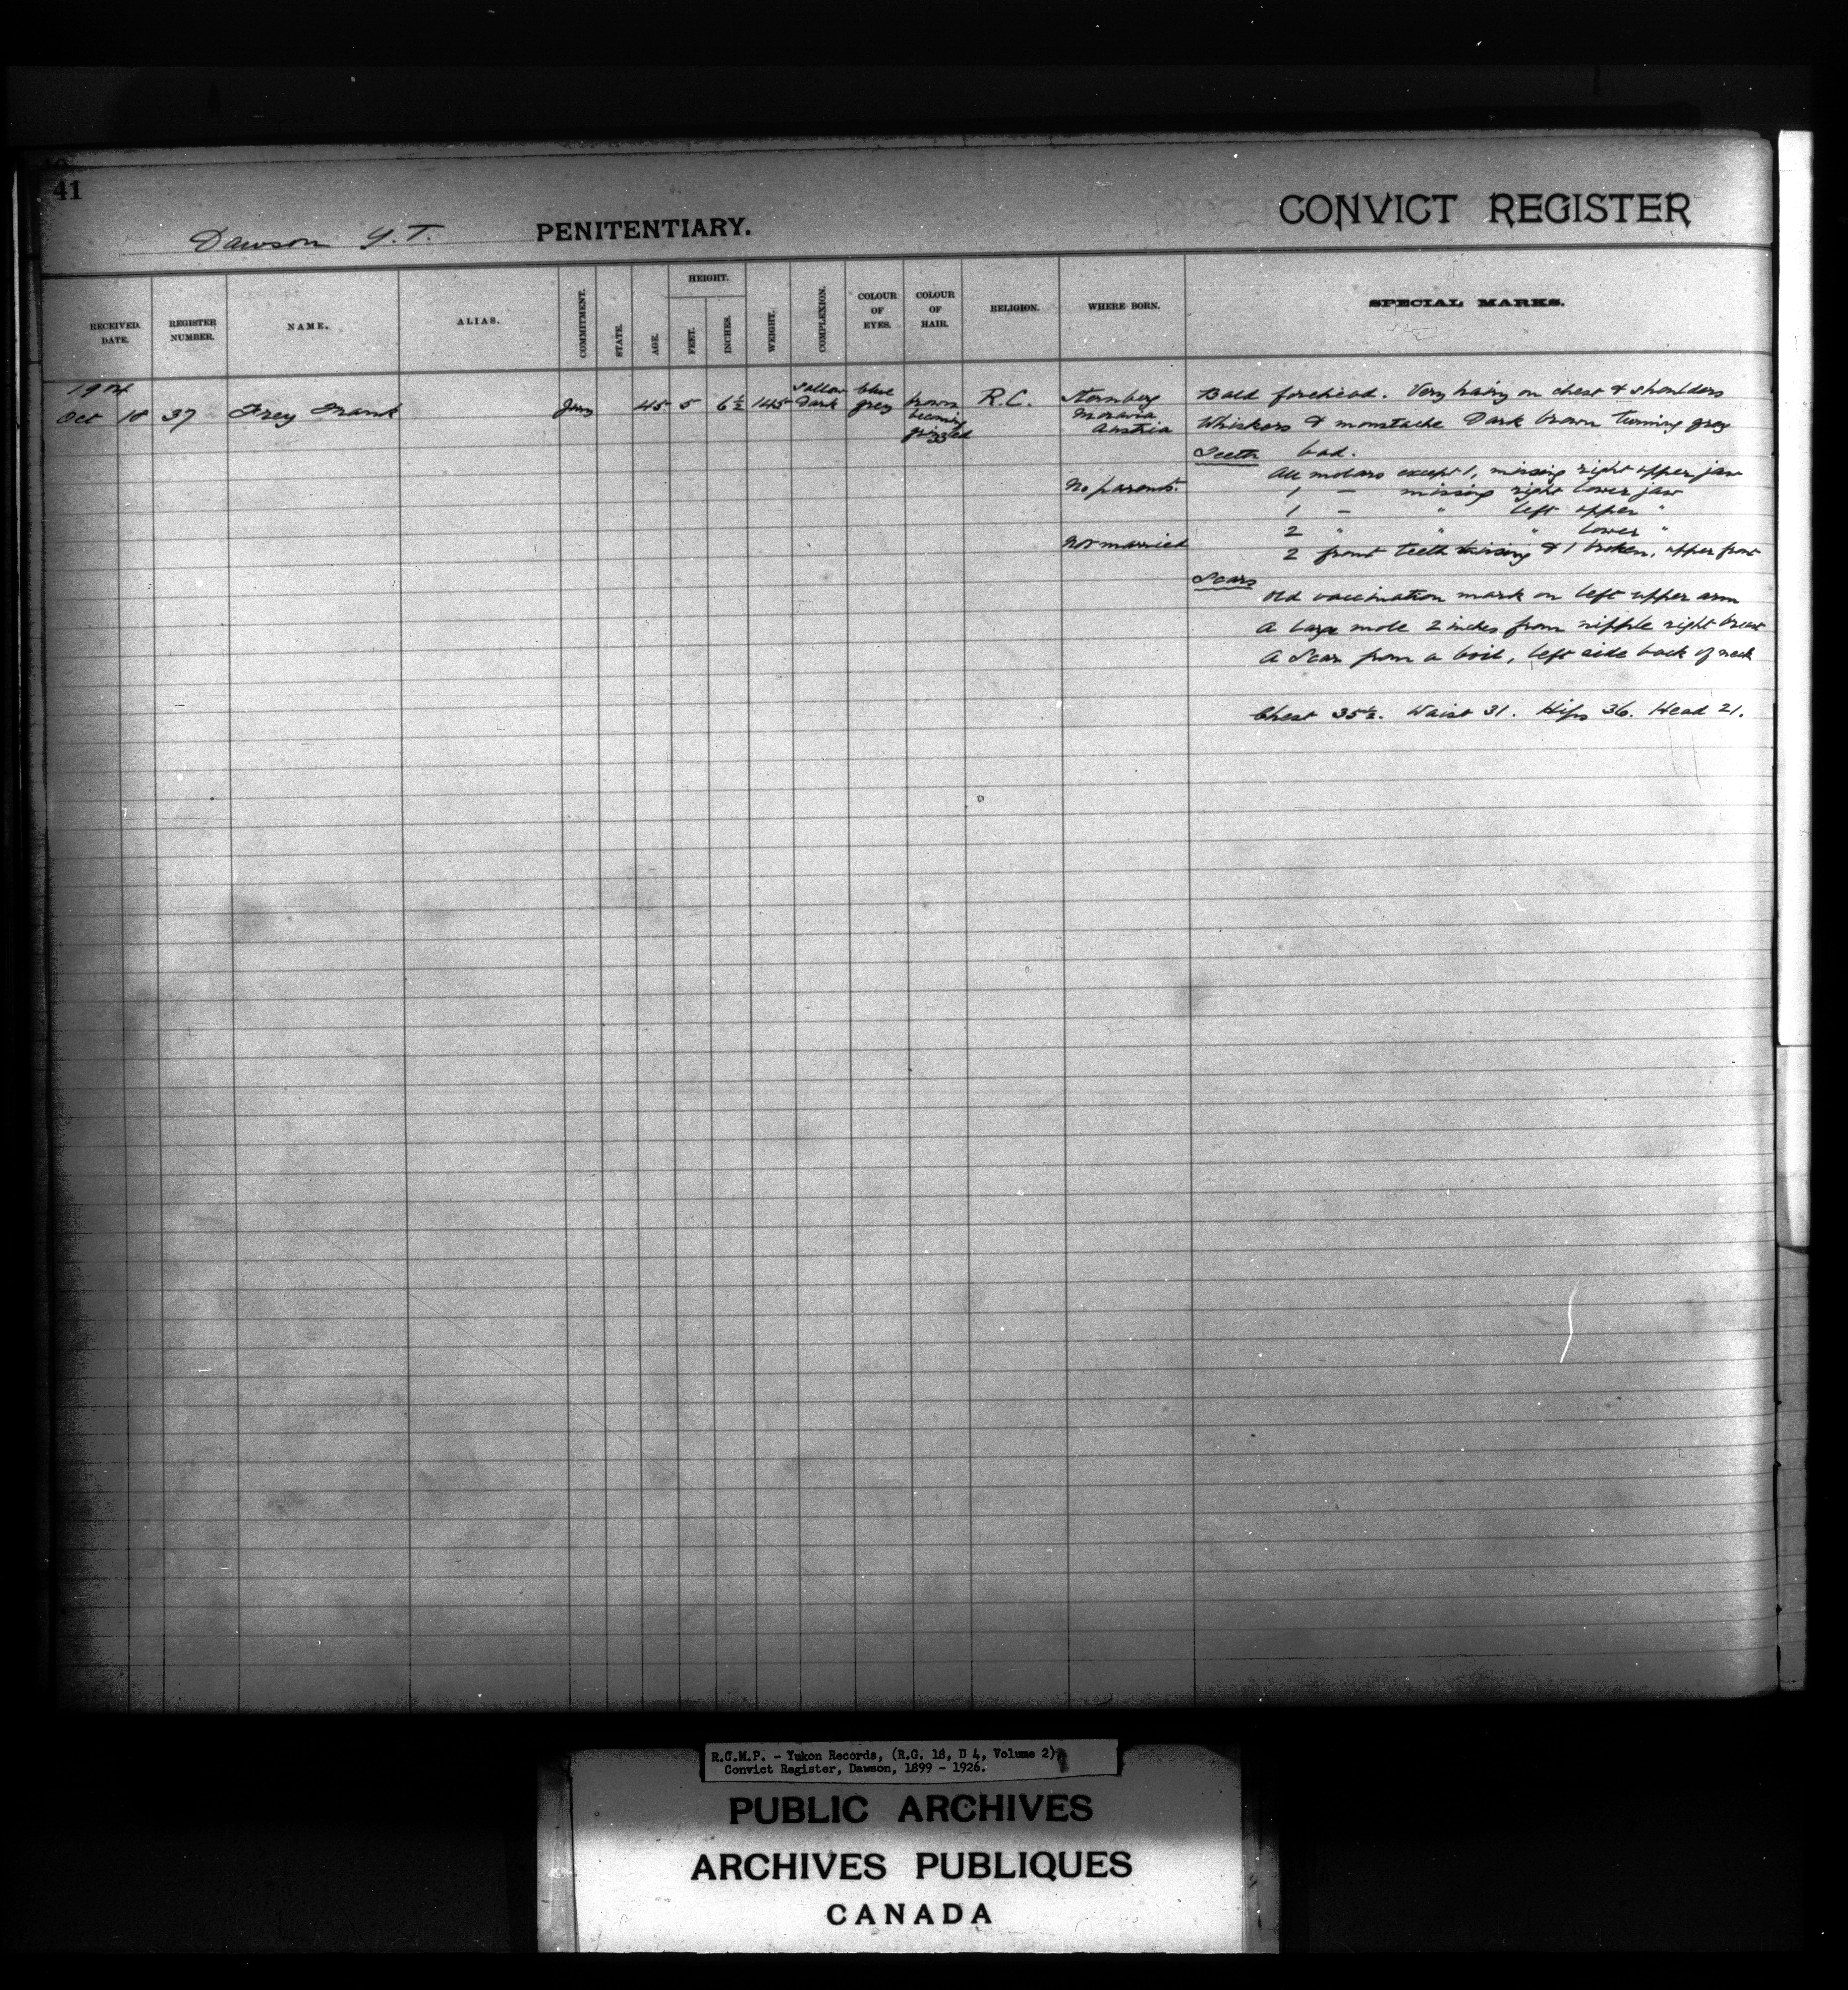 41
CONVICT REGISTER
Dawson Y.T. PENITENTIARY.
RECEIVED. DATE. REGISTER NUMBER. NAME. ALIAS. COMMITMENT. STATE. AGE. HEIGHT. FEET. INCHES. WEIGHT. COMPLEXION. COLOUR OF EYES. COLOUR OF HAIR. RELIGION. WHERE BORN. SPECIAL MARKS.
1904
Oct 18 37 Frey Frank 45 5 6½ 145 Sallow Dark blue grey brown becoming grizzled R.C. Sternberg Moravia Austria
No parents.
Not married
Bald forehead. Very hairy on chest & shoulders
Whiskers & moustache Dark brown turning grey
Teeth bad.
All molars except 1, missing right upper jaw
1 – missing right lower jaw
1 – " left upper "
2 " " " lower "
2 front teeth missing & 1 broken, upper front
Scars
Old vaccination mark on left upper arm
A large mole 2 inches from nipple right breast
A Scar from a boil, left side back of neck
Chest 35½. Waist 31. Hips 36. Head 21.
R.C.M.P. - Yukon Records, (R.G. 18, D 4, Volume 2),
Convict Register, Dawson, 1899 - 1926.
PUBLIC ARCHIVES
ARCHIVES PUBLIQUES
CANADA